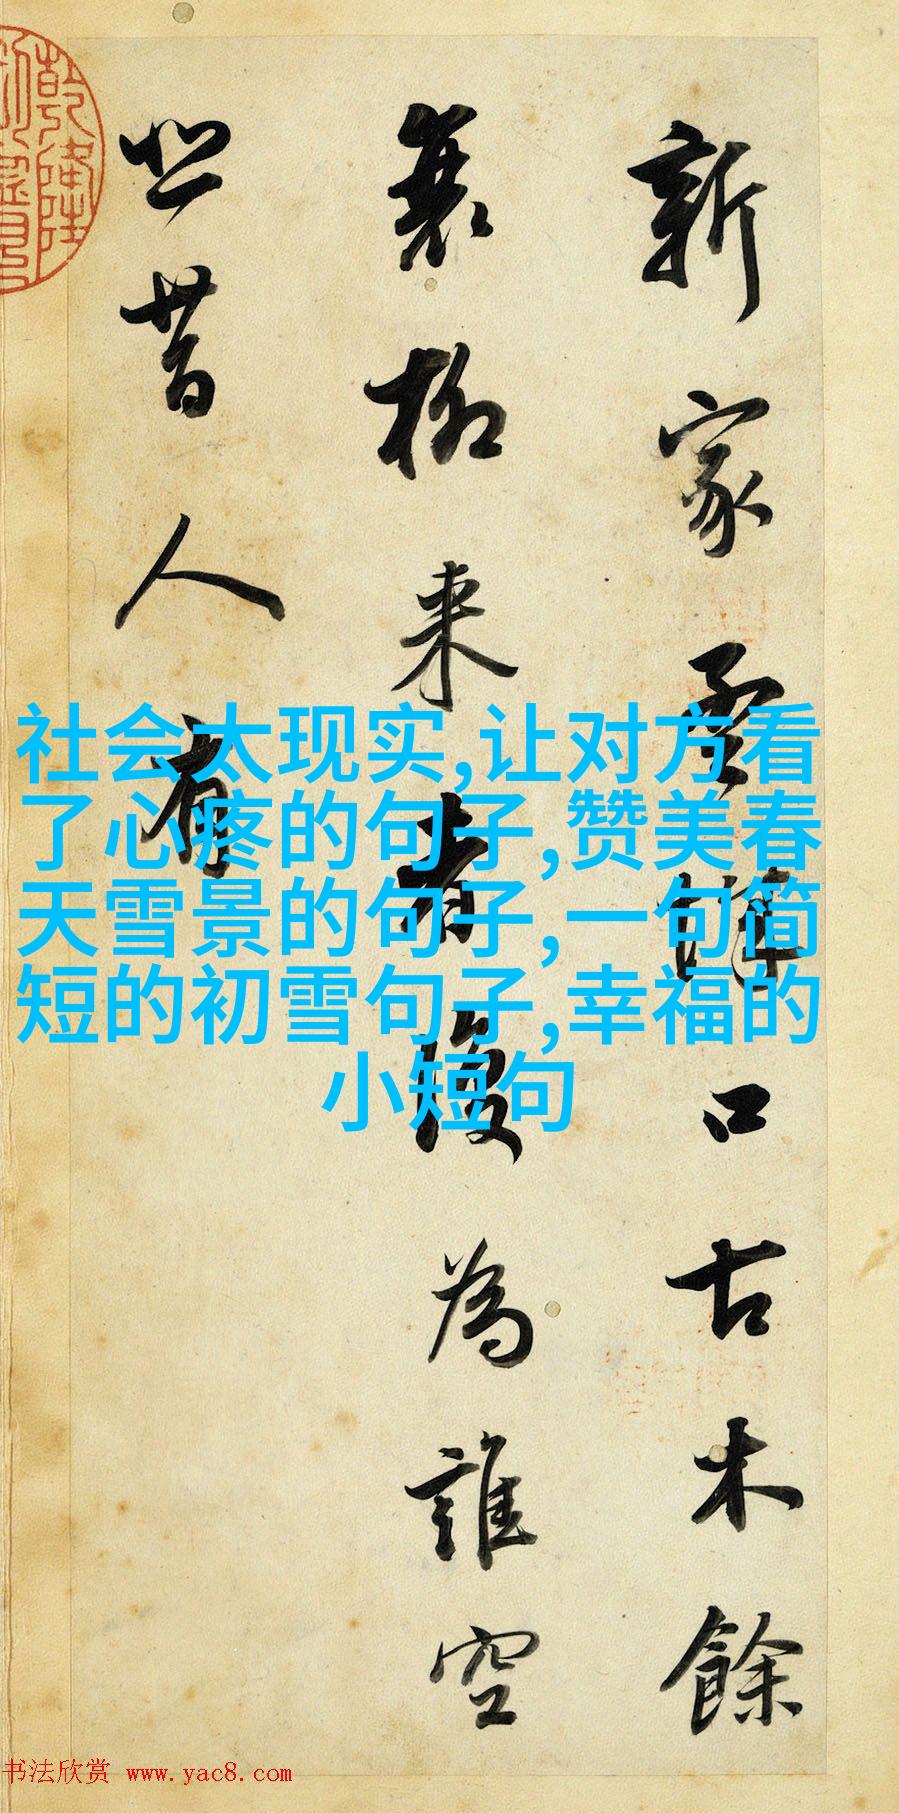 新家孟城口古木餘
衰柳来者復為誰空
悲昔人有
社会太现实,让对方看
了心疼的句子,赞美春
天雪景的句子,一句简
短的初雪句子,幸福的
小短句
书法欣赏 www.yac8.com